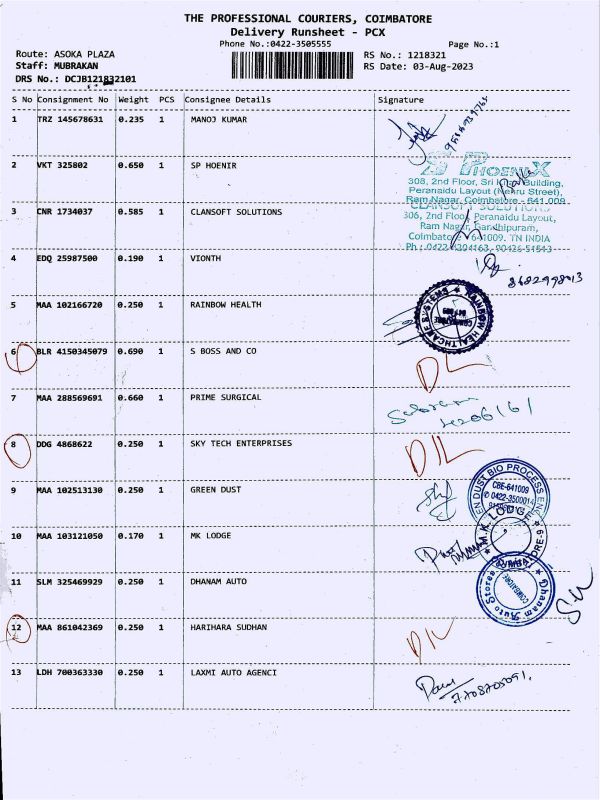 THE PROFESSIONAL COURIERS, COIMBATORE
Delivery Runsheet - PCX
Phone No.:0422-3505555
Page No.:1
Route: ASOKA PLAZA
RS No.: 1218321
Staff: MUBRAKAN
RS Date: 03-Aug-2023
DRS No.: DCJB121832101
S No Consignment No Weight PCS Consignee Details Signature
1 TRZ 145678631 0.235 1 MANOJ KUMAR
2 VKT 325802 0.650 1 SP HOENIR
SP PHOENIX
308, 2nd Floor, Sri Building,
Peranaidu Layout (Nehru Street),
Ram Nagar, Coimbatore - 641 009
3 CNR 1734037 0.585 1 CLANSOFT SOLUTIONS
CLANSOFT SOLUTIONS
306, 2nd Floor, Peranaidu Layout,
Ram Nagar, Gandhipuram,
Coimbatore - 641009. TN INDIA
Ph : 0422 4204163, 90426 51543
4 EDQ 25987500 0.190 1 VIONTH
8682998013
5 MAA 102166720 0.250 1 RAINBOW HEALTH
RAINBOW HEALTHCARE SYSTEMS
COIMBATORE
6 BLR 4150345079 0.690 1 S BOSS AND CO
DL
7 MAA 288569691 0.660 1 PRIME SURGICAL
8 DDG 4868622 0.250 1 SKY TECH ENTERPRISES
D/L
9 MAA 102513130 0.250 1 GREEN DUST
DUST BIO PROCESS
CBE-641009
0422-3500014
10 MAA 103121050 0.170 1 MK LODGE
M.K. LODGE
11 SLM 325469929 0.250 1 DHANAM AUTO
Dhanam Auto Stores
COIMBATORE
12 MAA 861042369 0.250 1 HARIHARA SUDHAN
D/L
13 LDH 700363330 0.250 1 LAXMI AUTO AGENCI
7708705091.